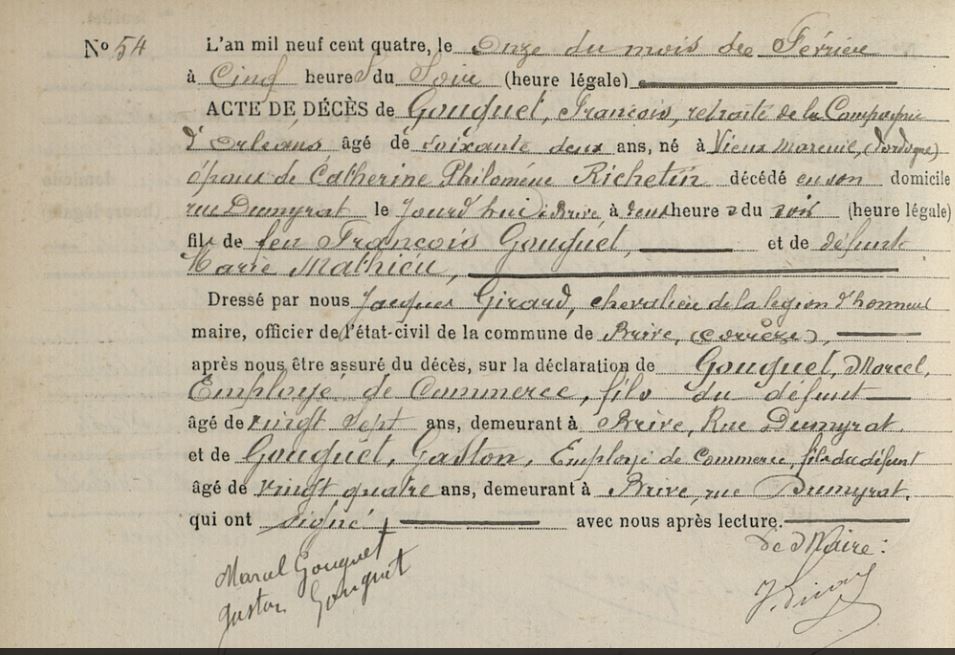 N° 54
L'an mil neuf cent quatre, le Onze du mois de Février
à Cinq heures du Soir (heure légale)
ACTE DE DÉCÈS de Gouquet, François, retraité de la Compagnie
d'Orléans âgé de soixante deux ans, né à Vieux Mareuil, (Dordogne)
époux de Catherine Philomène Richetin décédé en son domicile
rue Dumyrat le jourd'hui à Brive à deux heures du soir (heure légale)
fils de feu François Gouquet, et de défunte
Marie Mathieu,
Dressé par nous Jacques Girard, chevalier de la légion d'honneur
maire, officier de l'état-civil de la commune de Brive, (Corrèze),
après nous être assuré du décès, sur la déclaration de Gouquet, Marcel,
Employé de Commerce, fils du défunt
âgé de vingt sept ans, demeurant à Brive, Rue Dumyrat,
et de Gouquet, Gaston, Employé de Commerce, fils du défunt
âgé de vingt quatre ans, demeurant à Brive, rue Dumyrat,
qui ont signé, avec nous après lecture.
Le Maire :
Marcel Gouquet
Gaston Gouquet